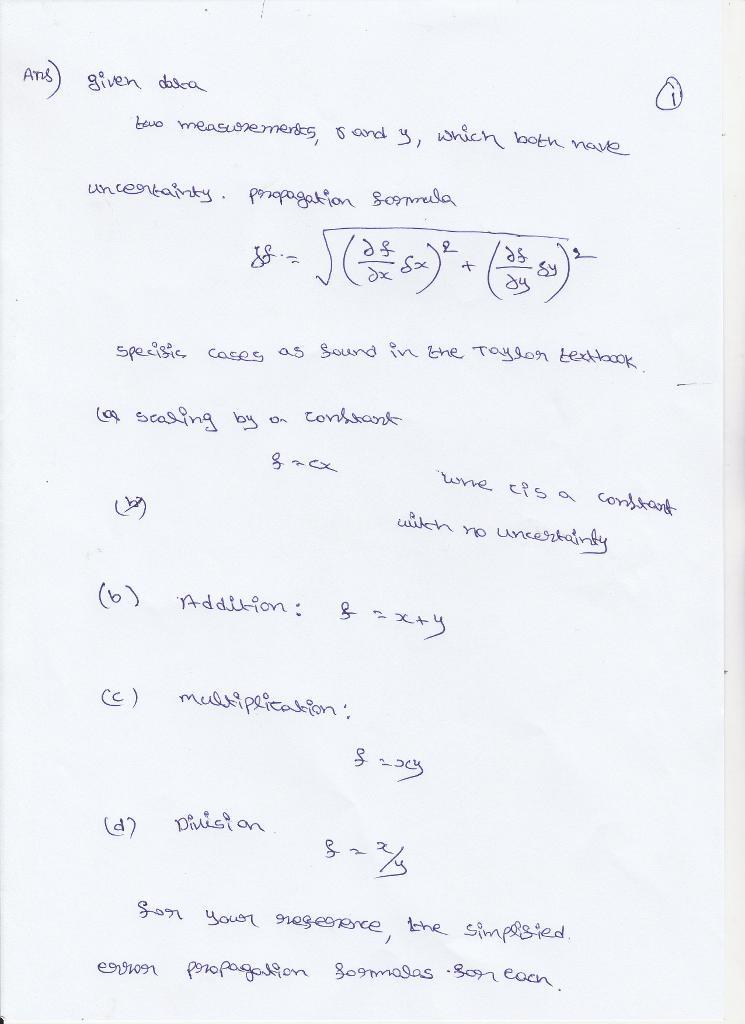 Ans) given data
①
two measurements, x and y, which both have
uncertainty. propagation formula
δf = √((∂f/∂x δx)² + (∂f/∂y δy)²)
specific cases as found in the Taylor textbook.
(a) scaling by a constant
f = cx
where c is a constant
(b)
with no uncertainty
(b) Addition: f = x+y
(c) multiplication:
f = xy
(d) Division
f = x/y
for your reference, the simplified.
error propagation formulas for each.